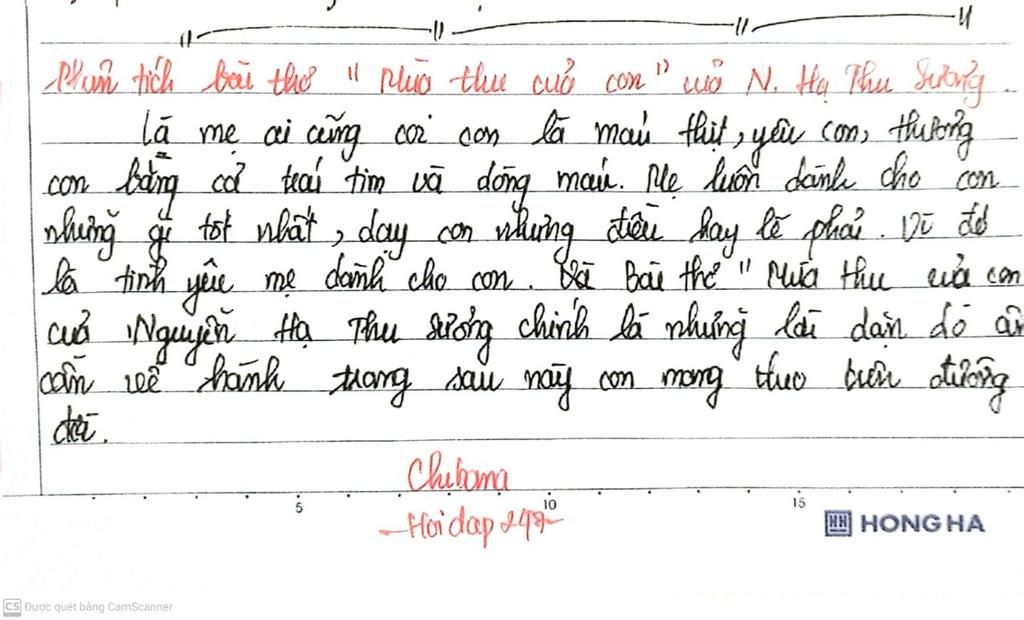 Phân tích bài thơ "Mùa thu của con" của N. Hạ Thu Sương.
Là mẹ ai cũng coi con là máu thịt, yêu con, thương
con bằng cả trái tim và dòng máu. Mẹ luôn dành cho con
những gì tốt nhất, dạy con những điều hay lẽ phải. Vì đó
là tình yêu mẹ dành cho con. Và Bài thơ "Mùa thu của con
của Nguyễn Hạ Thu Sương chính là những lời dặn dò ân
cần về hành trang sau này con mang theo trên đường
đời.
Chubama
Hoidap247
5 10 15
HH HONG HA
CS Được quét bằng CamScanner